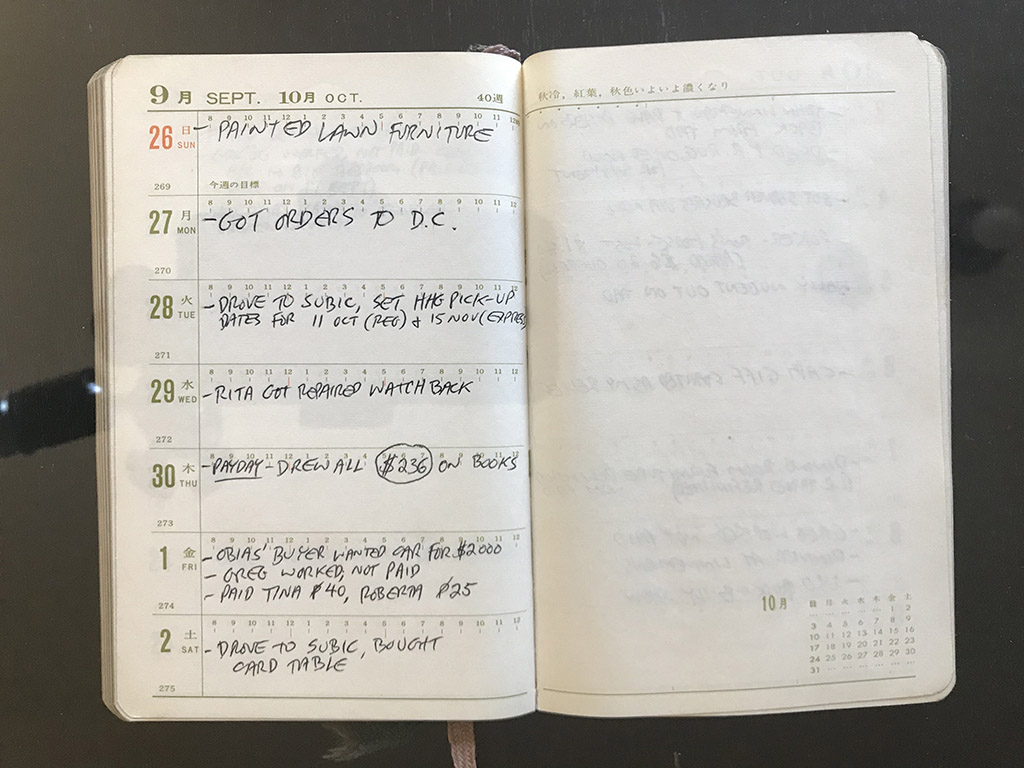 9月 SEPT. 10月 OCT. 40週
26 日 SUN
8 9 10 11 12 1 2 3 4 5 6 7 8 9 10 11 12
- PAINTED LAWN FURNITURE
269 今週の目標
27 月 MON
8 9 10 11 12 1 2 3 4 5 6 7 8 9 10 11 12
- GOT ORDERS TO D.C.
270
28 火 TUE
8 9 10 11 12 1 2 3 4 5 6 7 8 9 10 11 12
- DROVE TO SUBIC, SET HHG PICK-UP
DATES FOR 11 OCT (REG) & 15 NOV (EXPRESS)
271
29 水 WED
8 9 10 11 12 1 2 3 4 5 6 7 8 9 10 11 12
- RITA GOT REPAIRED WATCH BACK
272
30 木 THU
8 9 10 11 12 1 2 3 4 5 6 7 8 9 10 11 12
- PAYDAY - DREW ALL $236 ON BOOKS
273
1 金 FRI
8 9 10 11 12 1 2 3 4 5 6 7 8 9 10 11 12
- OBIAS' BUYER WANTED CAR FOR $2000
- GREG WORKED, NOT PAID
- PAID TINA ₱40, ROBERTA ₱25
274
2 土 SAT
8 9 10 11 12 1 2 3 4 5 6 7 8 9 10 11 12
- DROVE TO SUBIC, BOUGHT
CARD TABLE
275
秋冷，紅葉，秋色いよいよ濃くなり
10月
日 月 火 水 木 金 土
… … … … … 1 2
3 4 5 6 7 8 9
10 11 12 13 14 15 16
17 18 19 20 21 22 23
24 25 26 27 28 29 30
31 … … … … … …